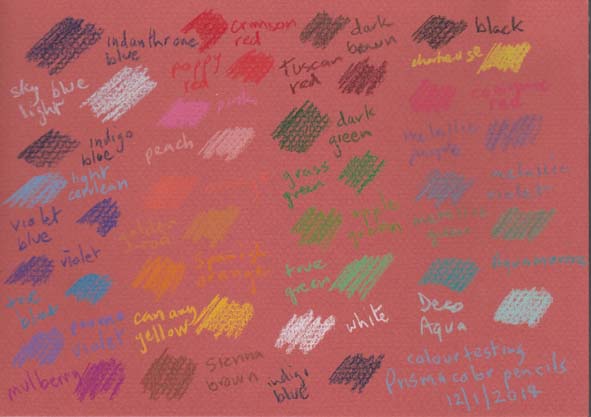 indanthrone
blue
crimson
red
dark
brown
black
sky blue
light
poppy
red
tuscan
red
chartreuse
pink
indigo
blue
peach
dark
green
metallic
purple
light
cerulean
grass
green
metallic
violet
blue
apple
green
metallic
green
violet
spanish
orange
true
green
true
blue
canary
yellow
white
Deco
Aqua
mulberry
sienna
brown
indigo
blue
colour testing
Prismacolor pencils
12/1/2014